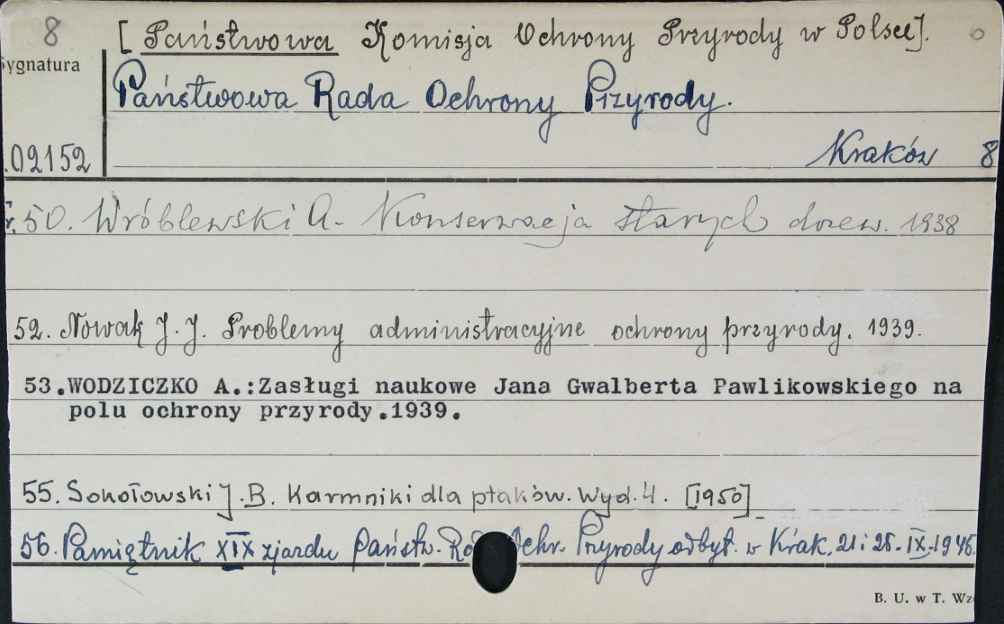 8 [Państwowa Komisja Ochrony Przyrody w Polsce].
Sygnatura
Państwowa Rada Ochrony Przyrody.
.02152 Kraków 8
50. Wróblewski A. Konserwacja starych drzew. 1938
52. Nowak J. J. Problemy administracyjne ochrony przyrody. 1939.
53.WODZICZKO A.:Zasługi naukowe Jana Gwalberta Pawlikowskiego na
polu ochrony przyrody.1939.
55. Sokołowski J. B. Karmniki dla ptaków. Wyd. 4. [1950]
56. Pamiętnik XIX zjazdu Państw. Ochr. Przyrody odbyt. w Krak. 21 i IX.
B. U. w T. Wz